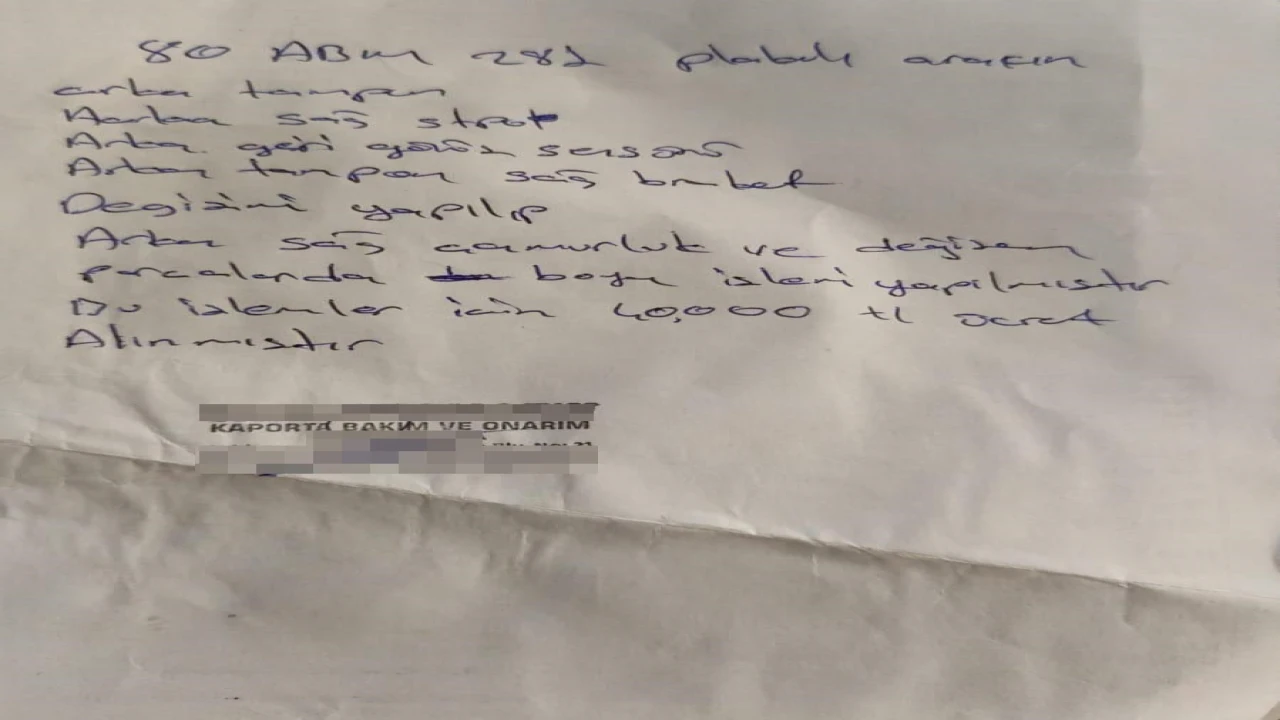 80 ABM 282 plakalı aracın
arka tampon
Aarka sağ strot
Arka geri görüş sensörü
Arka tampon sağ braket
Degişimi yapılıp
Arka sağ çamurluk ve değişen
parcalarda boya işleri yapılmıştır
Bu işlemler için 40,000 tl ücret
Alınmıştır
KAPORTA BAKIM VE ONARIM